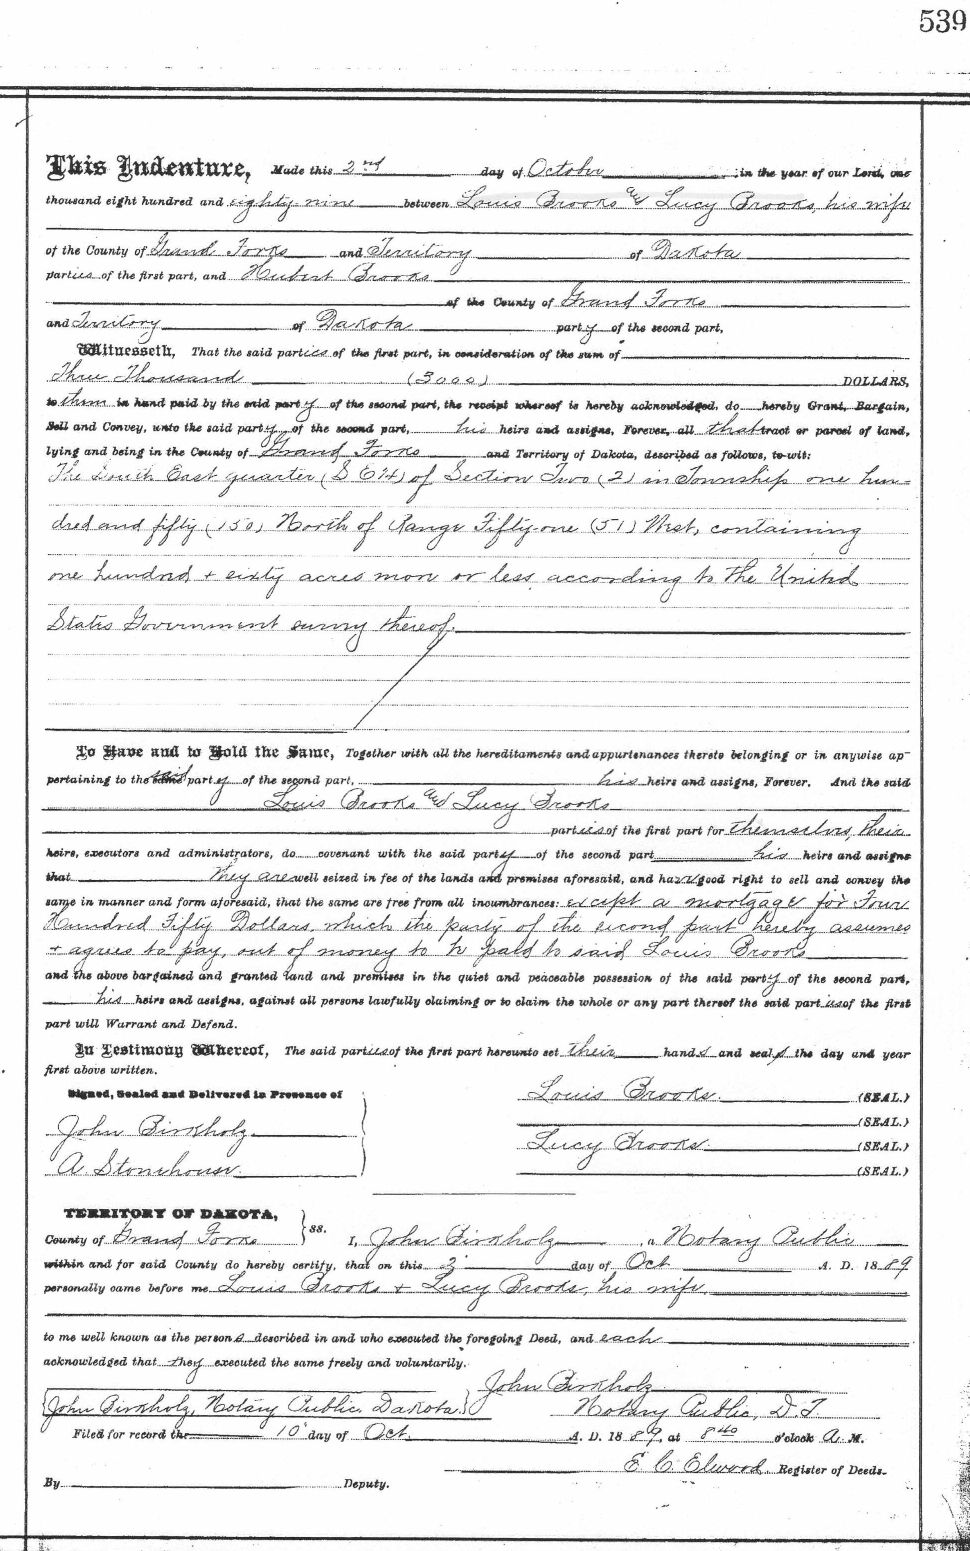 539
This Indenture, Made this 2nd day of October in the year of our Lord, one
thousand eight hundred and eighty nine between Louis Brooks and Lucy Brooks, his wife
of the County of Grand Forks and Territory of Dakota
parties of the first part, and Hubert Brooks
of the County of Grand Forks
and Territory of Dakota party of the second part,
Witnesseth, That the said parties of the first part, in consideration of the sum of
Three Thousand (3000) DOLLARS,
to them in hand paid by the said party of the second part, the receipt whereof is hereby acknowledged, do hereby Grant, Bargain,
Sell and Convey, unto the said party of the second part, his heirs and assigns, Forever, all that tract or parcel of land,
lying and being in the County of Grand Forks and Territory of Dakota, described as follows, to-wit:
The South East quarter (S E ¼) of Section Two (2) in Township one hun-
dred and fifty (150) North of Range Fifty-one (51) West, containing
one hundred + sixty acres more or less according to the United
States Government survey thereof.
To Have and to Hold the Same, Together with all the hereditaments and appurtenances thereto belonging or in anywise ap-
pertaining to the said party of the second part, his heirs and assigns, Forever. And the said
Louis Brooks and Lucy Brooks
parties of the first part for themselves, their
heirs, executors and administrators, do covenant with the said party of the second part his heirs and assigns
that they are well seized in fee of the lands and premises aforesaid, and have good right to sell and convey the
same in manner and form aforesaid, that the same are free from all incumbrances: except a mortgage for Four
Hundred Fifty Dollars, which the party of the second part hereby assumes
+ agrees to pay, out of money to be paid to said Louis Brooks
and the above bargained and granted land and premises in the quiet and peaceable possession of the said party of the second part,
his heirs and assigns, against all persons lawfully claiming or to claim the whole or any part thereof the said parties of the first
part will Warrant and Defend.
In Testimony Whereof, The said parties of the first part hereunto set their hands and seals the day and year
first above written.
Signed, Sealed and Delivered in Presence of Louis Brooks. (SEAL.)
(SEAL.)
John Birkholz Lucy Brooks. (SEAL.)
A. Stonehouse. (SEAL.)
TERRITORY OF DAKOTA,
County of Grand Forks } ss. I, John Birkholz, a Notary Public
within and for said County do hereby certify, that on this 3 day of Oct A. D. 1889
personally came before me Louis Brooks + Lucy Brooks, his wife
to me well known as the persons described in and who executed the foregoing Deed, and each
acknowledged that they executed the same freely and voluntarily.
John Birkholz
John Birkholz, Notary Public, Dakota. Notary Public, D.T.
Filed for record the 10 day of Oct. A. D. 1889, at 8 40 o'clock A. M.
E. C. Elwood, Register of Deeds.
By Deputy.